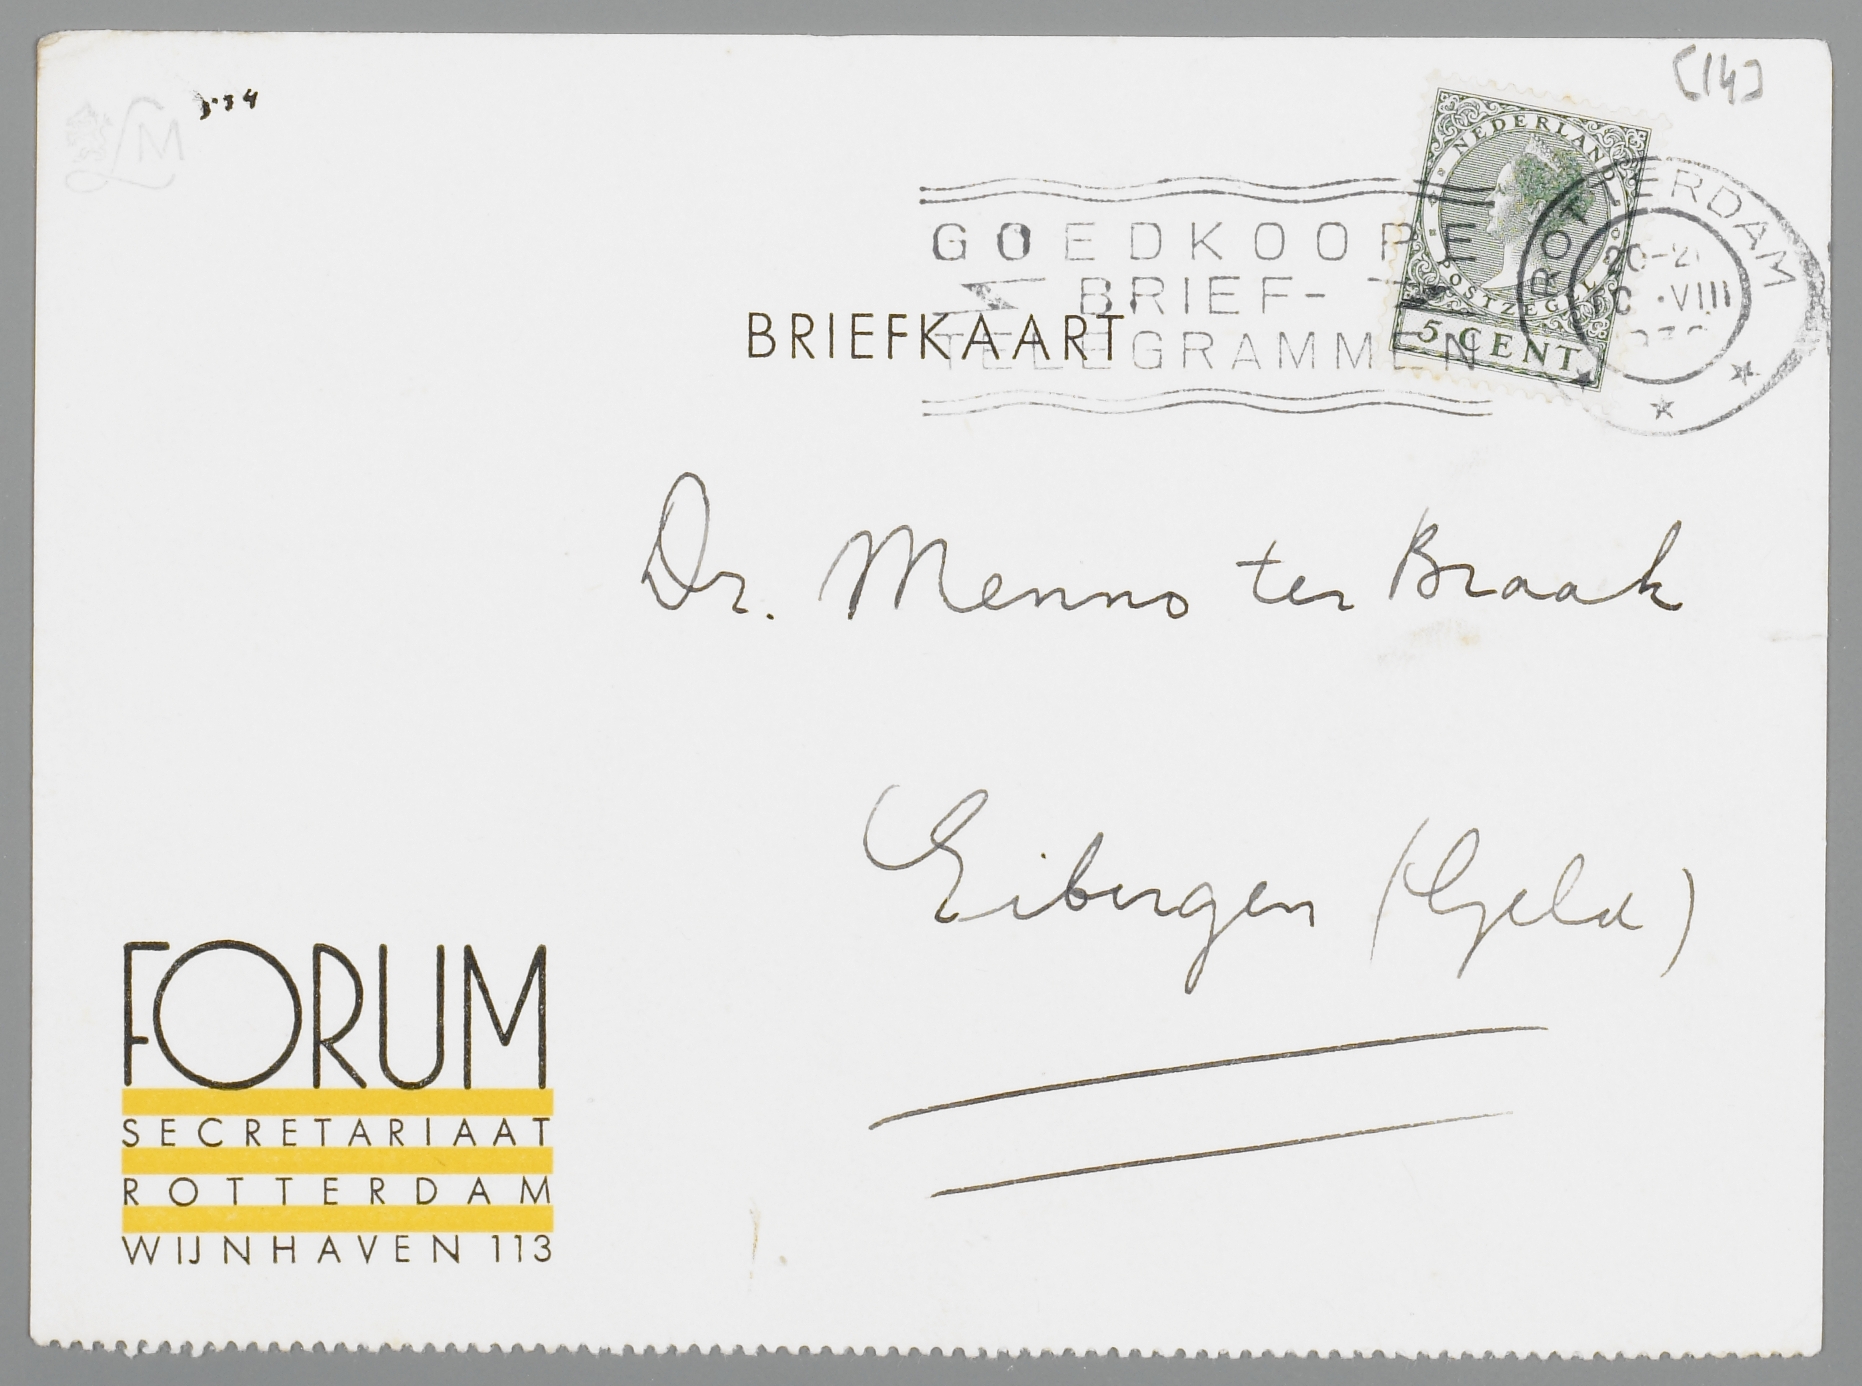 [14]
LM
NEDERLAND
POSTZEGEL
5 CENT
ROTTERDAM
VIII
GOEDKOOPE
BRIEF-
TELEGRAMMEN
BRIEFKAART
Dr. Menno ter Braak
Eibergen (Geld)
FORUM
SECRETARIAAT
ROTTERDAM
WIJNHAVEN 113